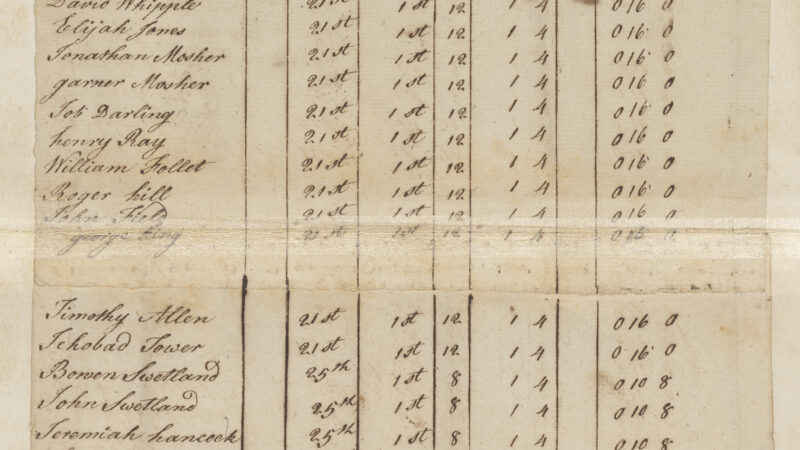 David Whipple 21st 1st 12 1 4 0 16 0
Elijah Jones 21st 1st 12 1 4 0 16 0
Jonathan Mosher 21st 1st 12 1 4 0 16 0
garner Mosher 21st 1st 12 1 4 0 16 0
Job Darling 21st 1st 12 1 4 0 16 0
henry Ray 21st 1st 12 1 4 0 16 0
William Follet 21st 1st 12 1 4 0 16 0
Roger hill 21st 1st 12 1 4 0 16 0
John Field 21st 1st 12 1 4 0 16 0
george 21st 1st 12 1 4 0 16 0
Timothy Allen 21st 1st 12 1 4 0 16 0
Ichobad Tower 21st 1st 12 1 4 0 16 0
Bowen Swetland 25th 1st 8 1 4 0 10 8
John Swetland 25th 1st 8 1 4 0 10 8
Jeremiah hancock 25th 1st 8 1 4 0 10 8